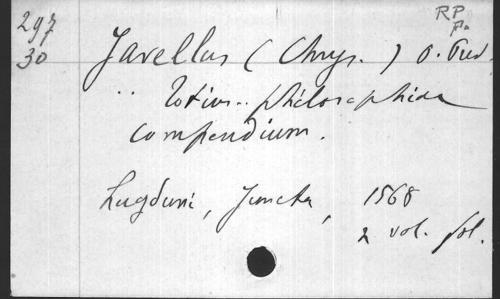 297
30
RP
Javellus (Chrys.) O. Pred.
Totius philosophiae
compendium.
Lugduni, Juncta, 1568
2 vol. fol.